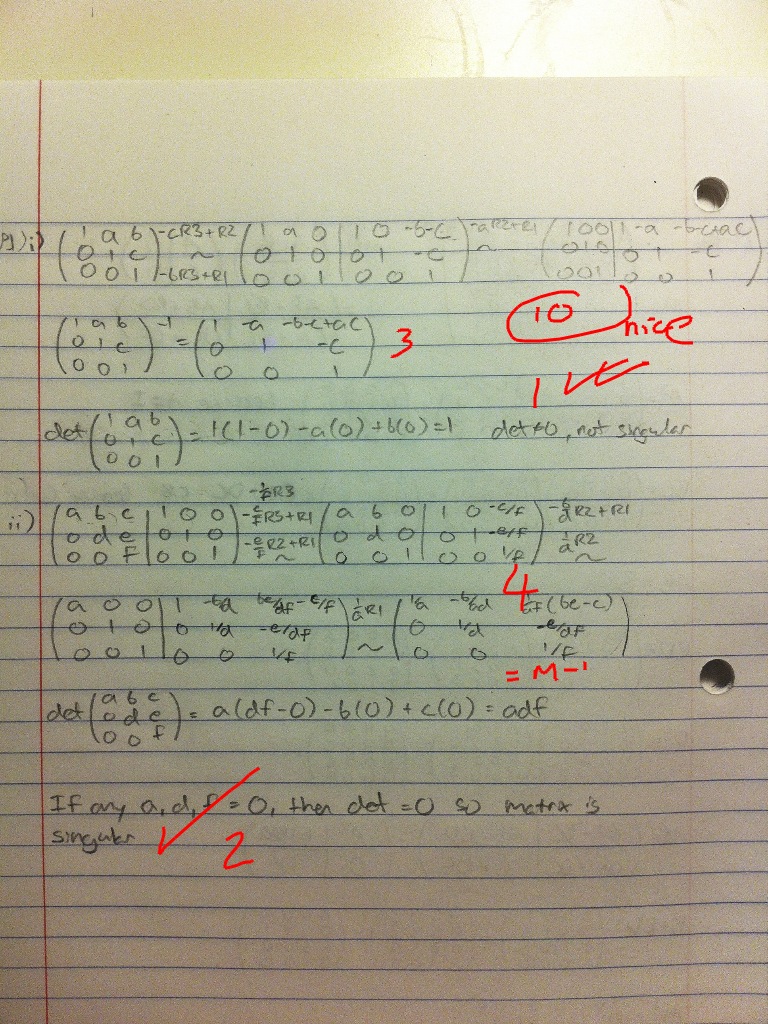 i) (1 a b / 0 1 c / 0 0 1) -cR3+R2 -bR3+R1 ~ (1 a 0 | 1 0 -b-c / 0 1 0 | 0 1 -c / 0 0 1 | 0 0 1) -aR2+R1 ~ (1 0 0 | 1 -a -b-c+ac / 0 1 0 | 0 1 -c / 0 0 1 | 0 0 1)
10 nice
(1 a b / 0 1 c / 0 0 1)^-1 = (1 -a -b-c+ac / 0 1 -c / 0 0 1) 3
1 ✓✓
det (1 a b / 0 1 c / 0 0 1) = 1(1-0) - a(0) + b(0) = 1 det≠0, not singular
ii) (a b c | 1 0 0 / 0 d e | 0 1 0 / 0 0 F | 0 0 1) -1/f R3 -c/f R3+R1 -e/f R2+R1 ~ (a b 0 | 1 0 -c/f / 0 d 0 | 0 1 -e/f / 0 0 1 | 0 0 1/f) -b/d R2+R1 1/d R2 ~
4
(a 0 0 | 1 -b/d be/df-c/f / 0 1 0 | 0 1/d -e/df / 0 0 1 | 0 0 1/f) 1/a R1 ~ (1/a -b/ad 1/af (be-c) / 0 1/d -e/df / 0 0 1/f)
= M-1
det (a b c / 0 d e / 0 0 f) = a(df-0) - b(0) + c(0) = adf
If any a, d, f = 0, then det = 0 so matrix is
singular ✓ 2